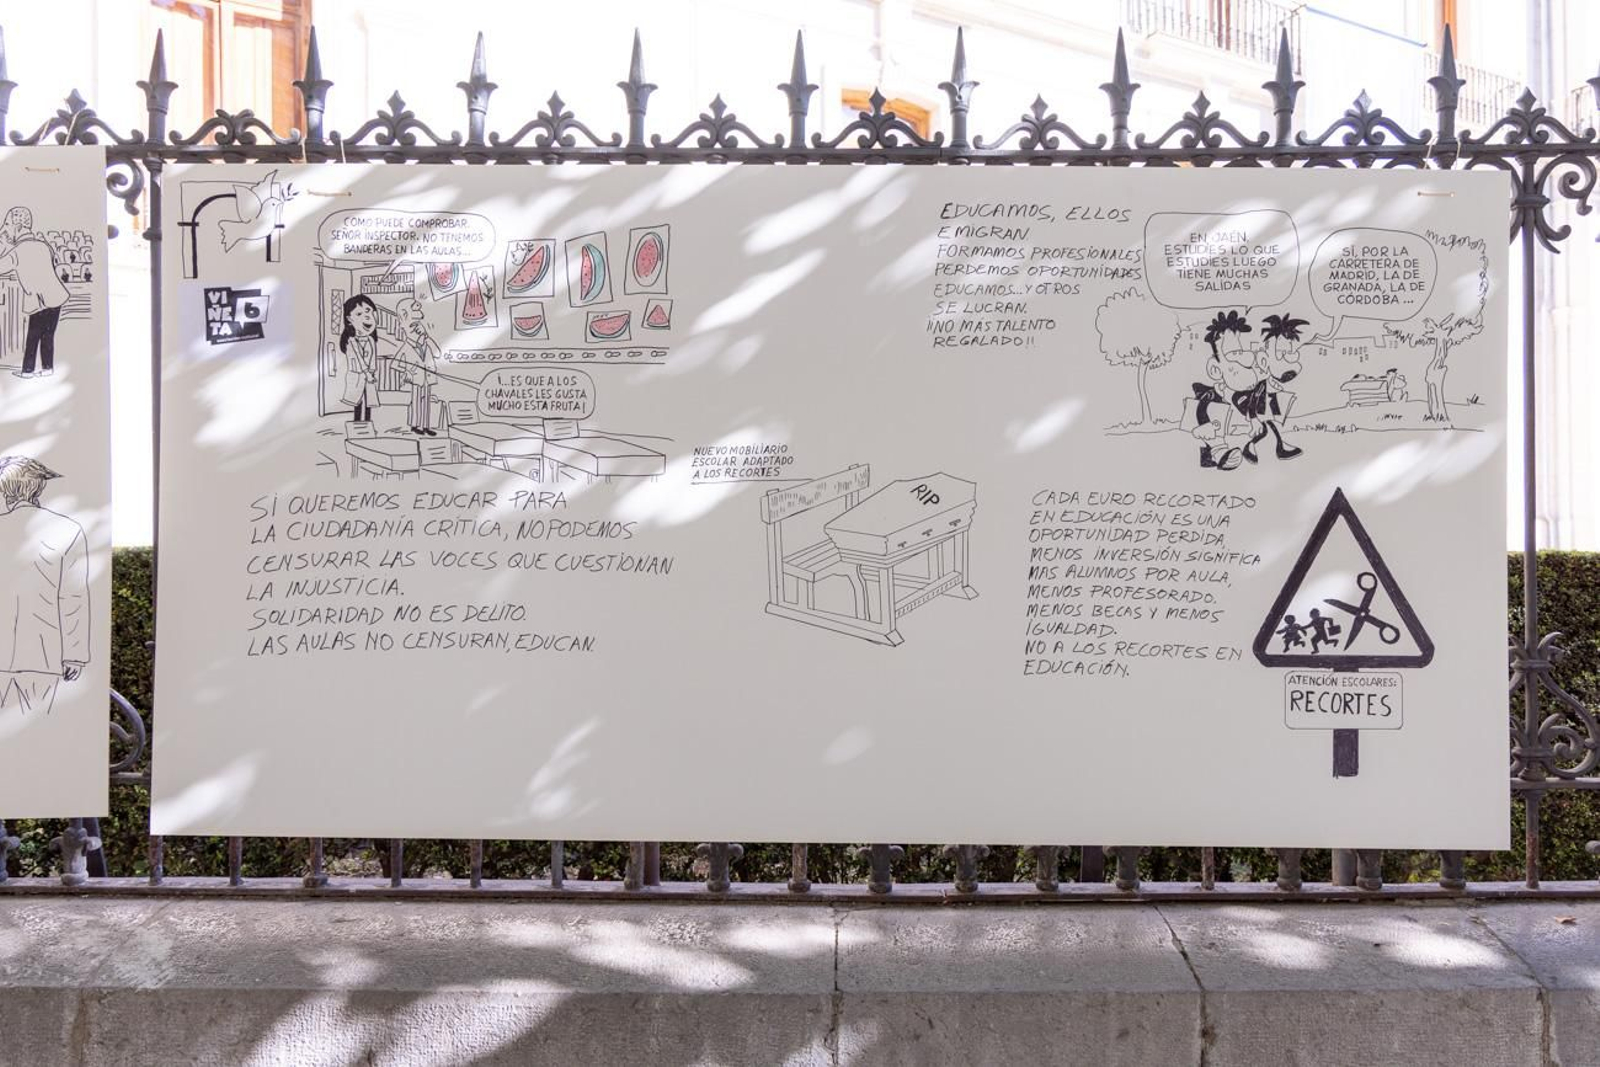 VI
ÑE
TA 6
COMO PUEDE COMPROBAR,
SEÑOR INSPECTOR, NO TENEMOS
BANDERAS EN LAS AULAS...
¡...ES QUE A LOS
CHAVALES LES GUSTA
MUCHO ESTA FRUTA!
SI QUEREMOS EDUCAR PARA
LA CIUDADANÍA CRÍTICA, NO PODEMOS
CENSURAR LAS VOCES QUE CUESTIONAN
LA INJUSTICIA.
SOLIDARIDAD NO ES DELITO.
LAS AULAS NO CENSURAN, EDUCAN.
NUEVO MOBILIARIO
ESCOLAR ADAPTADO
A LOS RECORTES
RIP
EDUCAMOS, ELLOS
EMIGRAN.
FORMAMOS PROFESIONALES
PERDEMOS OPORTUNIDADES
EDUCAMOS...Y OTROS
SE LUCRAN.
¡¡NO MÁS TALENTO
REGALADO!!
EN JAÉN,
ESTUDIES LO QUE
ESTUDIES LUEGO
TIENE MUCHAS
SALIDAS
SÍ, POR LA
CARRETERA DE
MADRID, LA DE
GRANADA, LA DE
CÓRDOBA ...
CADA EURO RECORTADO
EN EDUCACIÓN ES UNA
OPORTUNIDAD PERDIDA,
MENOS INVERSIÓN SIGNIFICA
MAS ALUMNOS POR AULA,
MENOS PROFESORADO,
MENOS BECAS Y MENOS
IGUALDAD.
NO A LOS RECORTES EN
EDUCACIÓN.
ATENCIÓN ESCOLARES:
RECORTES